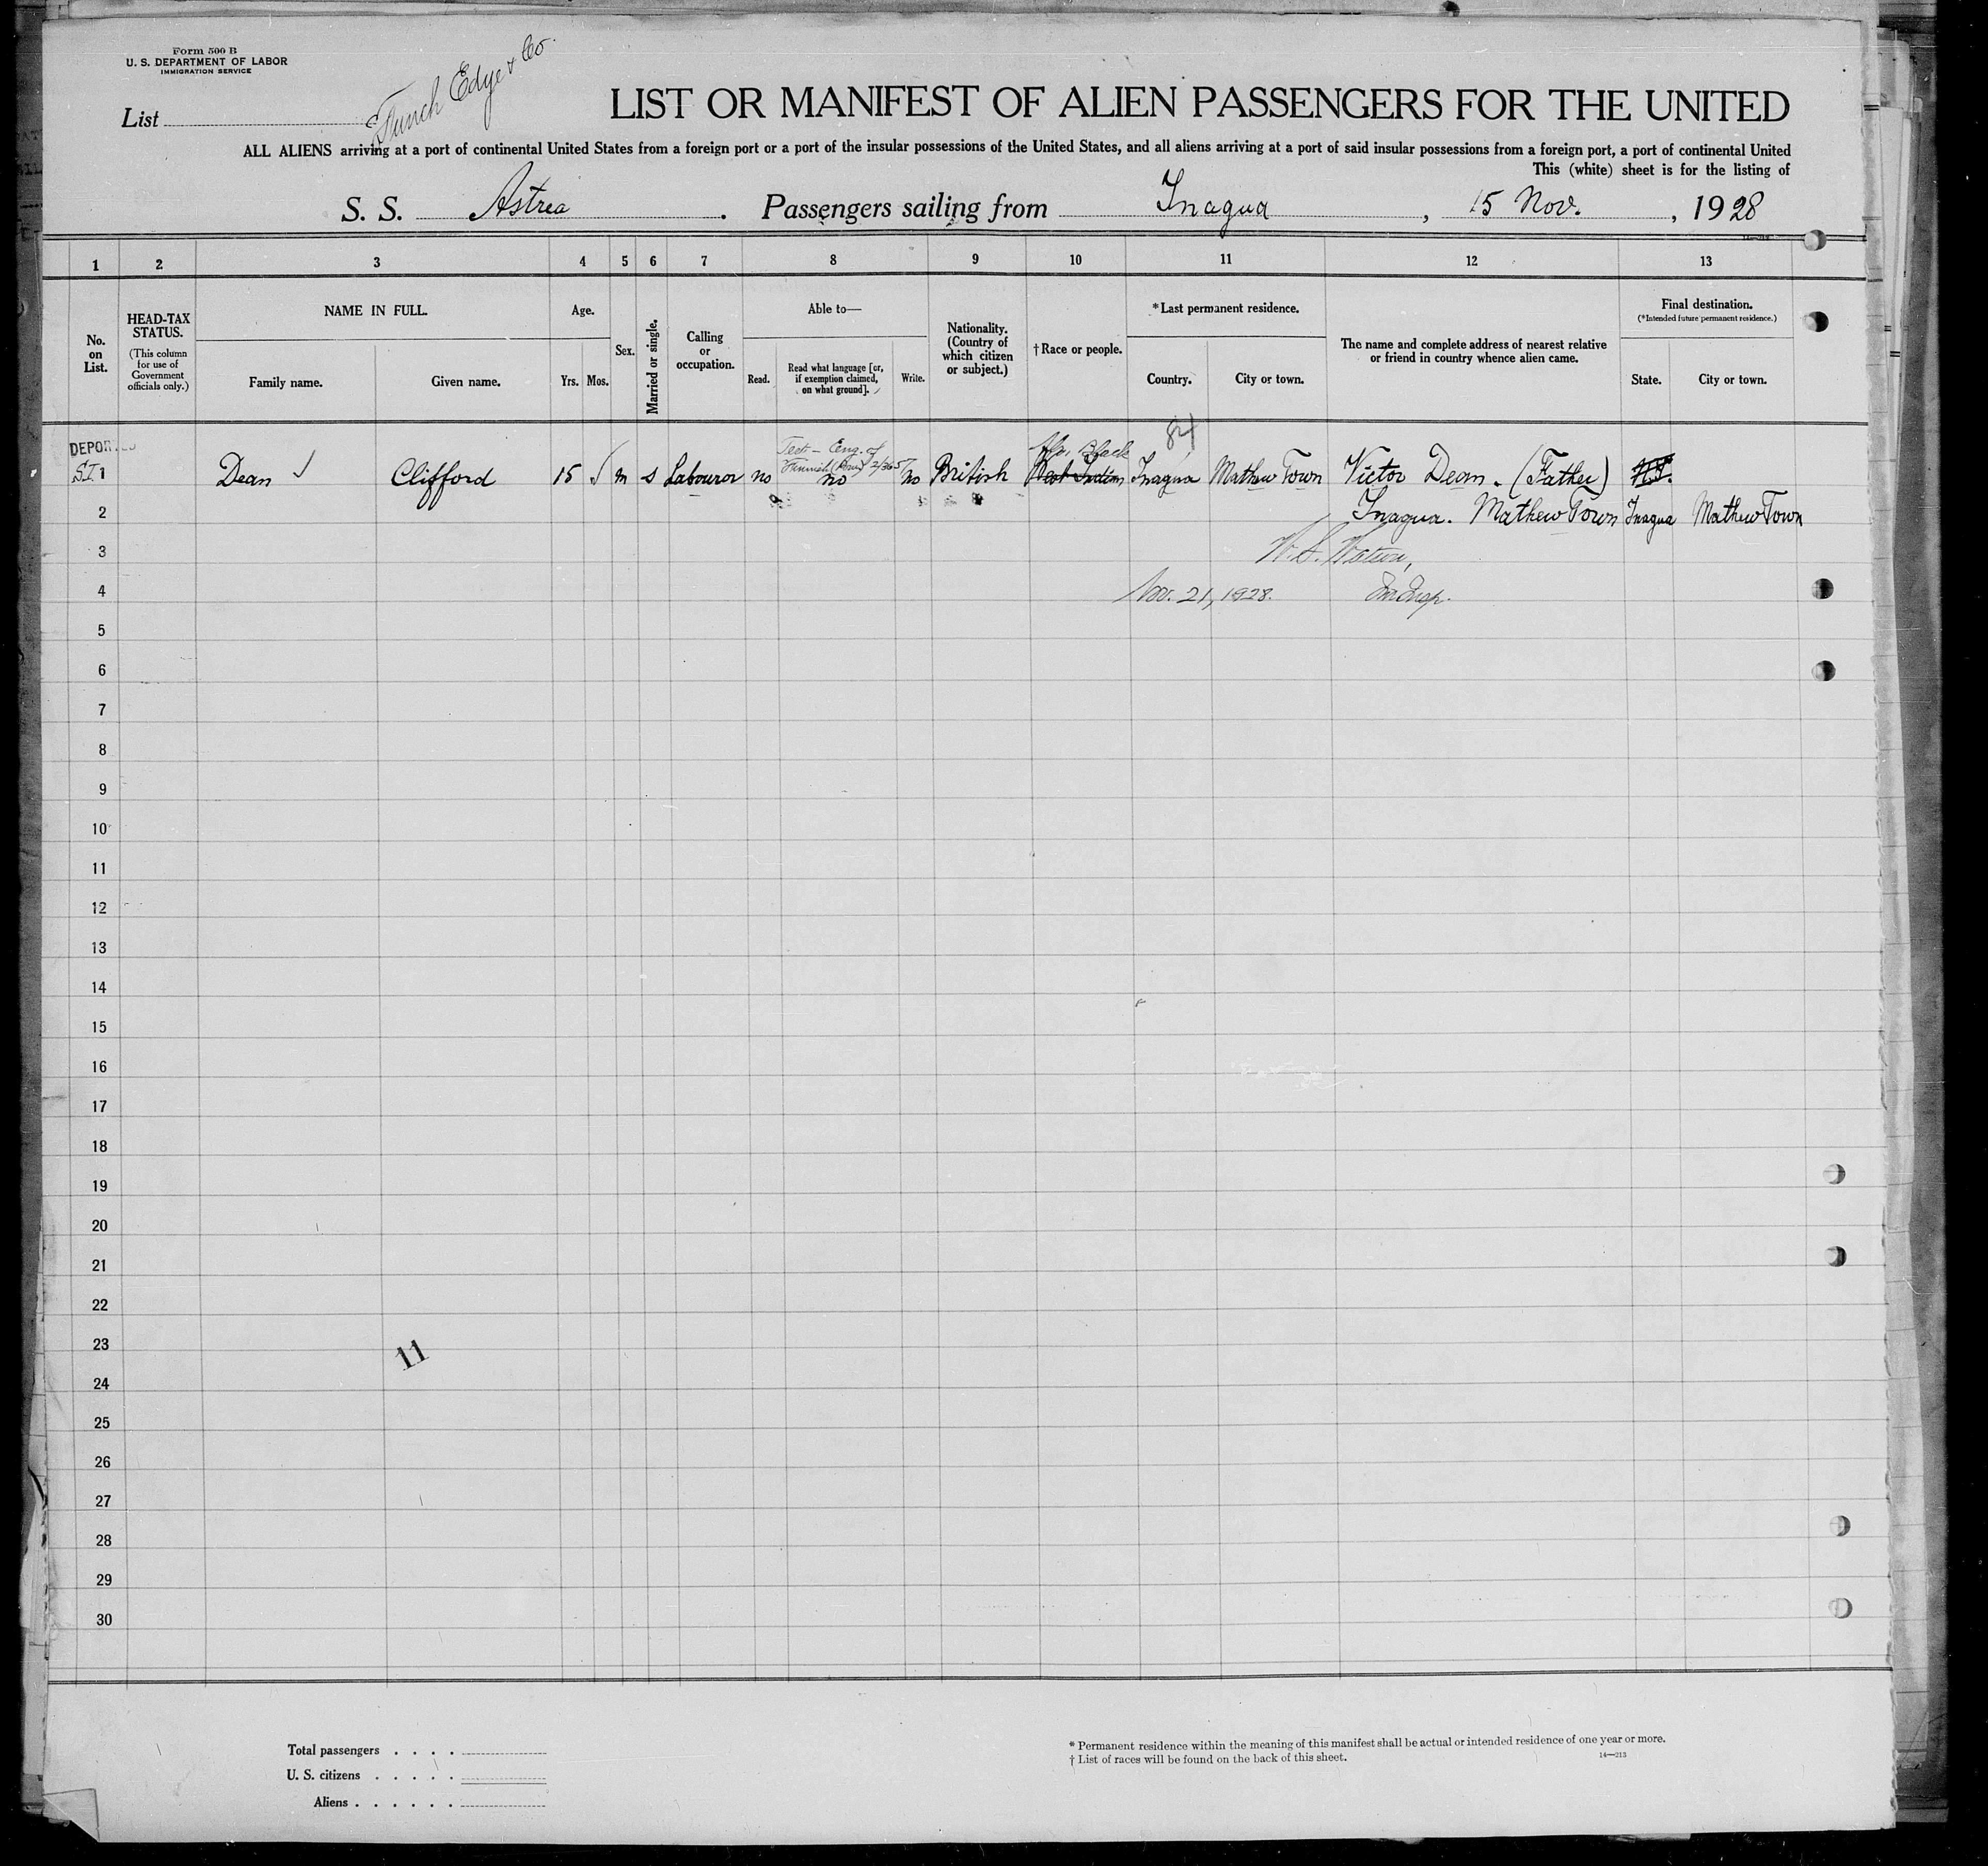 Form 500 B
U. S. DEPARTMENT OF LABOR
IMMIGRATION SERVICE
Funch Edye & Co.
List
LIST OR MANIFEST OF ALIEN PASSENGERS FOR THE UNITED
ALL ALIENS arriving at a port of continental United States from a foreign port or a port of the insular possessions of the United States, and all aliens arriving at a port of said insular possessions from a foreign port, a port of continental United
This (white) sheet is for the listing of
S. S. Astrea . Passengers sailing from Inagua , 15 Nov. , 1928
1 2 3 4 5 6 7 8 9 10 11 12 13
No. on List.
HEAD-TAX STATUS.
(This column for use of Government officials only.)
NAME IN FULL.
Family name. Given name.
Age.
Yrs. Mos.
Sex.
Married or single.
Calling or occupation.
Able to—
Read. Read what language [or, if exemption claimed, on what ground]. Write.
Nationality. (Country of which citizen or subject.)
† Race or people.
* Last permanent residence.
Country. City or town.
The name and complete address of nearest relative or friend in country whence alien came.
Final destination.
(* Intended future permanent residence.)
State. City or town.
84
DEPORTED
Test - Eng. of
Black
SI 1 Dean Clifford 15 m s Labourer no no no British West Indian Inagua Mathew Town Victor Dean. (Father)
2 Inagua. Mathew Town Inagua Mathew Town
3
4 Nov. 21, 1928.
5
6
7
8
9
10
11
12
13
14
15
16
17
18
19
20
21
22
23
11
24
25
26
27
28
29
30
Total passengers . . . .
U. S. citizens . . . . .
Aliens . . . . . .
* Permanent residence within the meaning of this manifest shall be actual or intended residence of one year or more.
† List of races will be found on the back of this sheet.
14—213